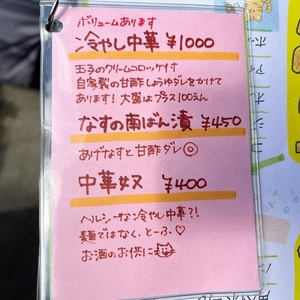 ボリュームあります
冷やし中華 ¥1000
玉子のクリームコロッケ付
自家製の甘酢しょうゆダレをかけて
あります！大盛はプラス100えん
なすの南ばん漬 ¥450
あげなすと甘酢ダレ◎
中華奴 ¥400
ヘルシーな冷やし中華?!
麺ではなく、とーふ♡
お酒のお供に